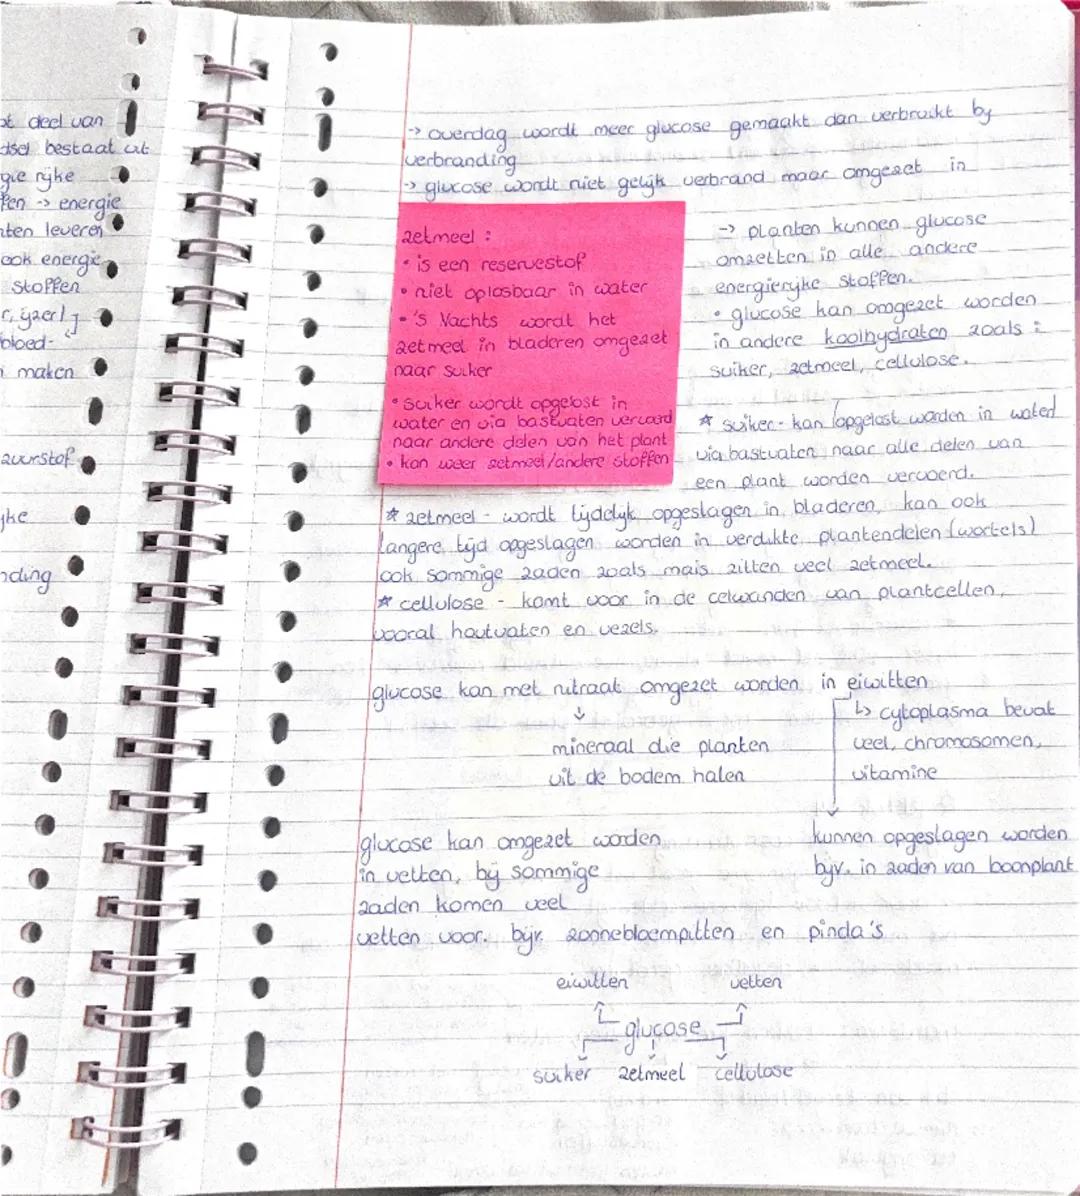 ot deel van
dsel bestaat uit
gie rijke
ffen -> energie
nten leveren
ook energie
stoffen
r, ijzer]
bloed-
n maken
zuurstof
jke
nding
-> overdag wordt meer glucose gemaakt dan verbruikt bij
verbranding
-> glucose wordt niet gelijk verbrand maar omgezet in
zetmeel :
• is een reservestof
• niet oplosbaar in water
• 's Nachts wordt het
zetmeel in bladeren omgezet
naar suiker
• suiker wordt opgelost in
water en via bastvaten vervoerd
naar andere delen van het plant
• kan weer zetmeel/andere stoffen
-> planten kunnen glucose
omzetten in alle andere
energierijke stoffen.
• glucose kan omgezet worden
in andere koolhydraten zoals :
suiker, zetmeel, cellulose.
* suiker - kan (opgelost worden in water)
via bastvaten naar alle delen van
een plant worden vervoerd.
* zetmeel - wordt tijdelijk opgeslagen in bladeren, kan ook
langere tijd opgeslagen worden in verdikte plantendelen (wortels)
ook sommige zaden zoals mais zitten veel zetmeel.
* cellulose - komt voor in de celwanden van plantcellen,
vooral houtvaten en vezels.
glucose kan met nitraat omgezet worden in eiwitten
↓
mineraal die planten
uit de bodem halen
↳ cytoplasma bevat
veel, chromosomen,
vitamine
kunnen opgeslagen worden
bijv. in zaden van boonplant
glucose kan omgezet worden
in vetten, bij sommige
zaden komen veel
vetten voor. bijv. zonnebloempitten en pinda's
eiwitten vetten
glucose
suiker zetmeel cellulose